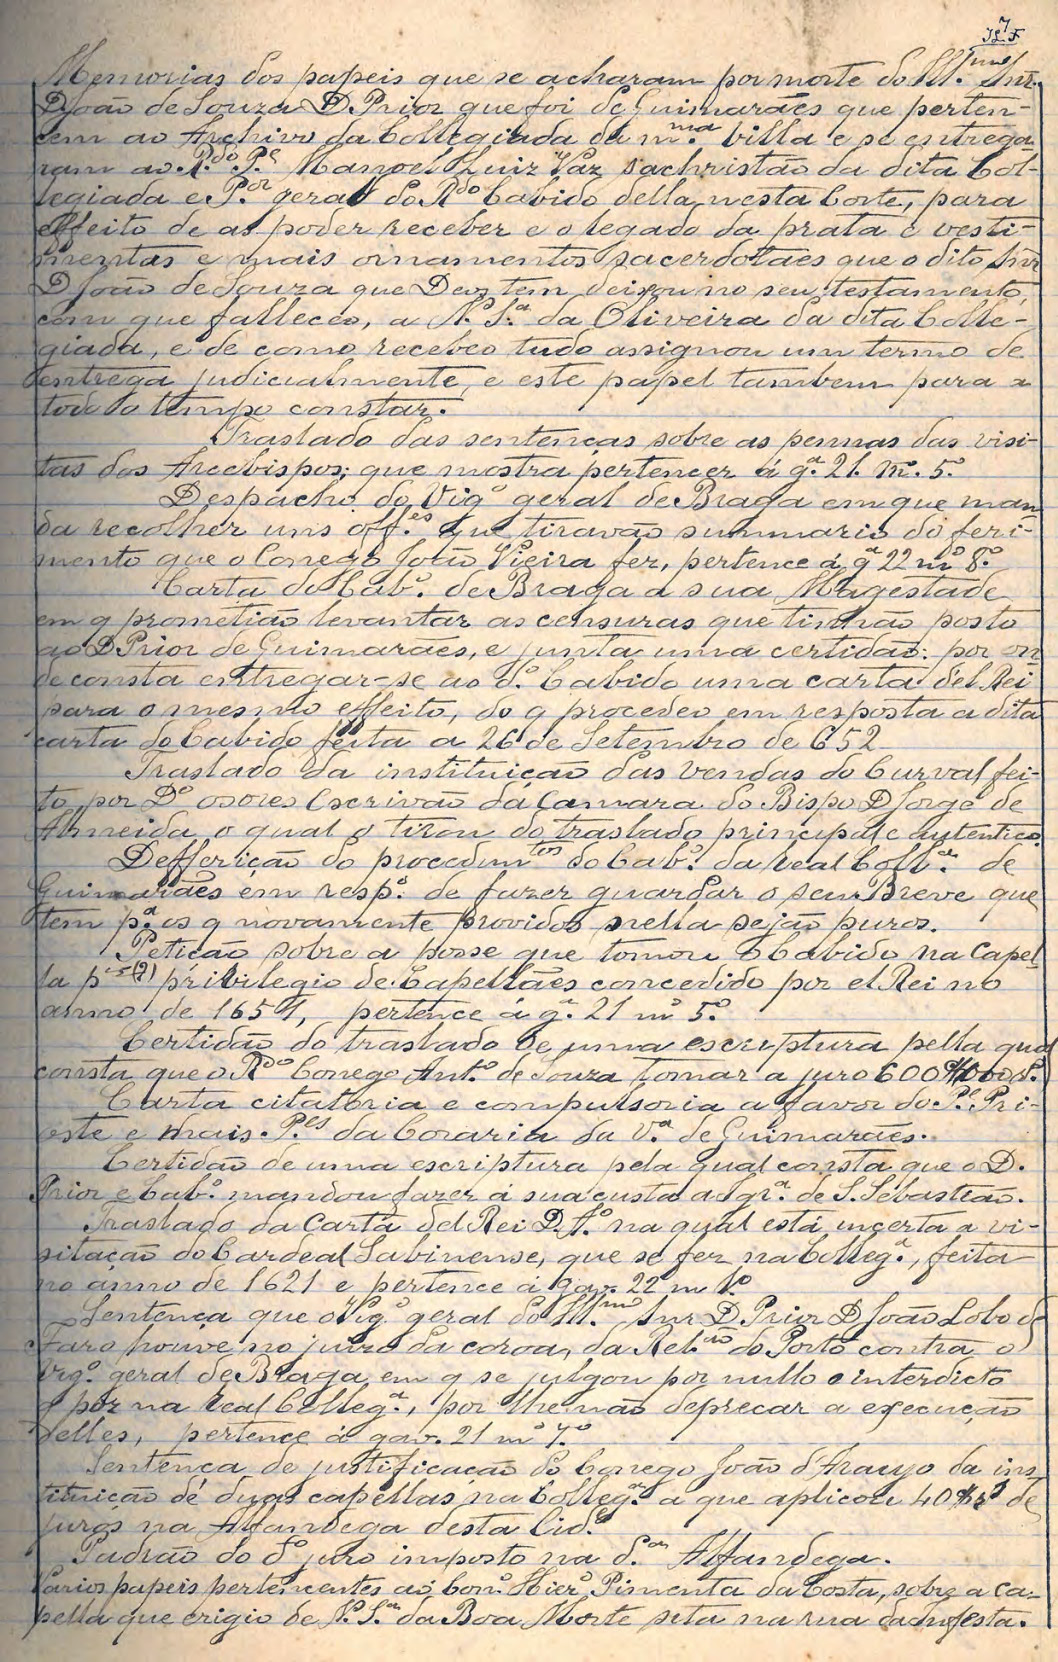 7
Memorias dos papeis que se acharam por morte do Ill.mo Snr.
D João de Souza D. Prior que foi de Guimarães que perten-
cem ao Archivo da Collegiada da m.ma villa e se entrega
ram ao R.do P.e Manoel Luiz Vaz sachristão da dita Col-
legiada e P.or geral do R.do Cabido della nesta Corte, para
effeito de as poder receber e o legado da prata e vesti-
mentas e mais ornamentos sacerdotaes que o dito Snr
D João de Souza que Deos tem deixou no seu testamento,
com que falleceo, a N. S.a da Oliveira da dita Colle-
giada, e de como recebeo tudo assignou um termo de
entrega judicialmente, e este papel tambem para a
todo o tempo constar.
Traslado das sentenças sobre as pennas das visi-
tas dos Arcebispos; que mostra pertencer á g.a 21. m.o 5.o
Despacho do Vig.o geral de Braga em que man
da recolher uns off.es que tiravão summario do feri-
mento que o Conego João Vieira fez, pertence á g.a 22 m.o 8.o
Carta do Cab.o de Braga a sua Magestade
em q prometião levantar as censuras que tinhão posto
ao D Prior de Guimarães, e junta uma certidão: por on
de consta entregar-se ao d.o Cabido uma carta del Rei
para o mesmo effeito, do q procedeo em resposta a dita
carta do Cabido feita a 26 de Setembro de 652
Traslado da instituição das vendas do Curval fei-
to, por D.o osores Escrivão da Camara do Bispo D Jorge de
Almeida o qual o tirou do traslado principal e autentico.
Defferição do procedim.tos do Cab.o da real Coll.a de
Guimarães em resp.o de fazer guardar o seu Breve que
tem p.a os q novamente providos nella sejão puros.
Petição sobre a posse que tomou o Cabido na Capel
la (?) privilegio de Capellães concedido por el Rei no
anno de 1654, pertence á g.a 21 m.o 5.o
Certidão do traslado de uma escriptura pella qual
consta que o R.do Conego Ant.o de Souza tomar a juro
Carta citatoria e compulsoria a favor do P.e Pri-
oste e mais P.es da Coraria da V.a de Guimarães.
Certidão de uma escriptura pela qual consta que o D.
Prior e Cab.o mandou fazer á sua custa a Igr.a de S. Sebastião.
Traslado da Carta del Rei D. A.o na qual está incerta a vi-
sitação do Cardeal Sabinense, que se fez na Colleg.a, feita
no anno de 1621 e pertence á gav. 22 m 1.o
Sentença que o Vig.o geral do Ill.mo Snr D. Prior D João Lobo de
Faro houve no juizo da coroa, da Rel.ção do Porto contra o
Vig.o geral de Braga em q se julgou por nullo o interdicto
q poz na real Colleg.a, por lhe não deprecar a execução
delles, pertence á gav. 21 m.o 7.o
Sentença de justificação do Conego João d'Araujo da ins
tituição de duas capellas na Colleg.a a que aplicou de
juros na Alfandega desta Cid.e
Padrão do d.o juro imposto na d.a Alfandega.
Varios papeis pertencentes ao Con.o Hier.o Pimenta da Costa, sobre a ca-
pella que erigio de N. S.a da Boa Morte sita na rua